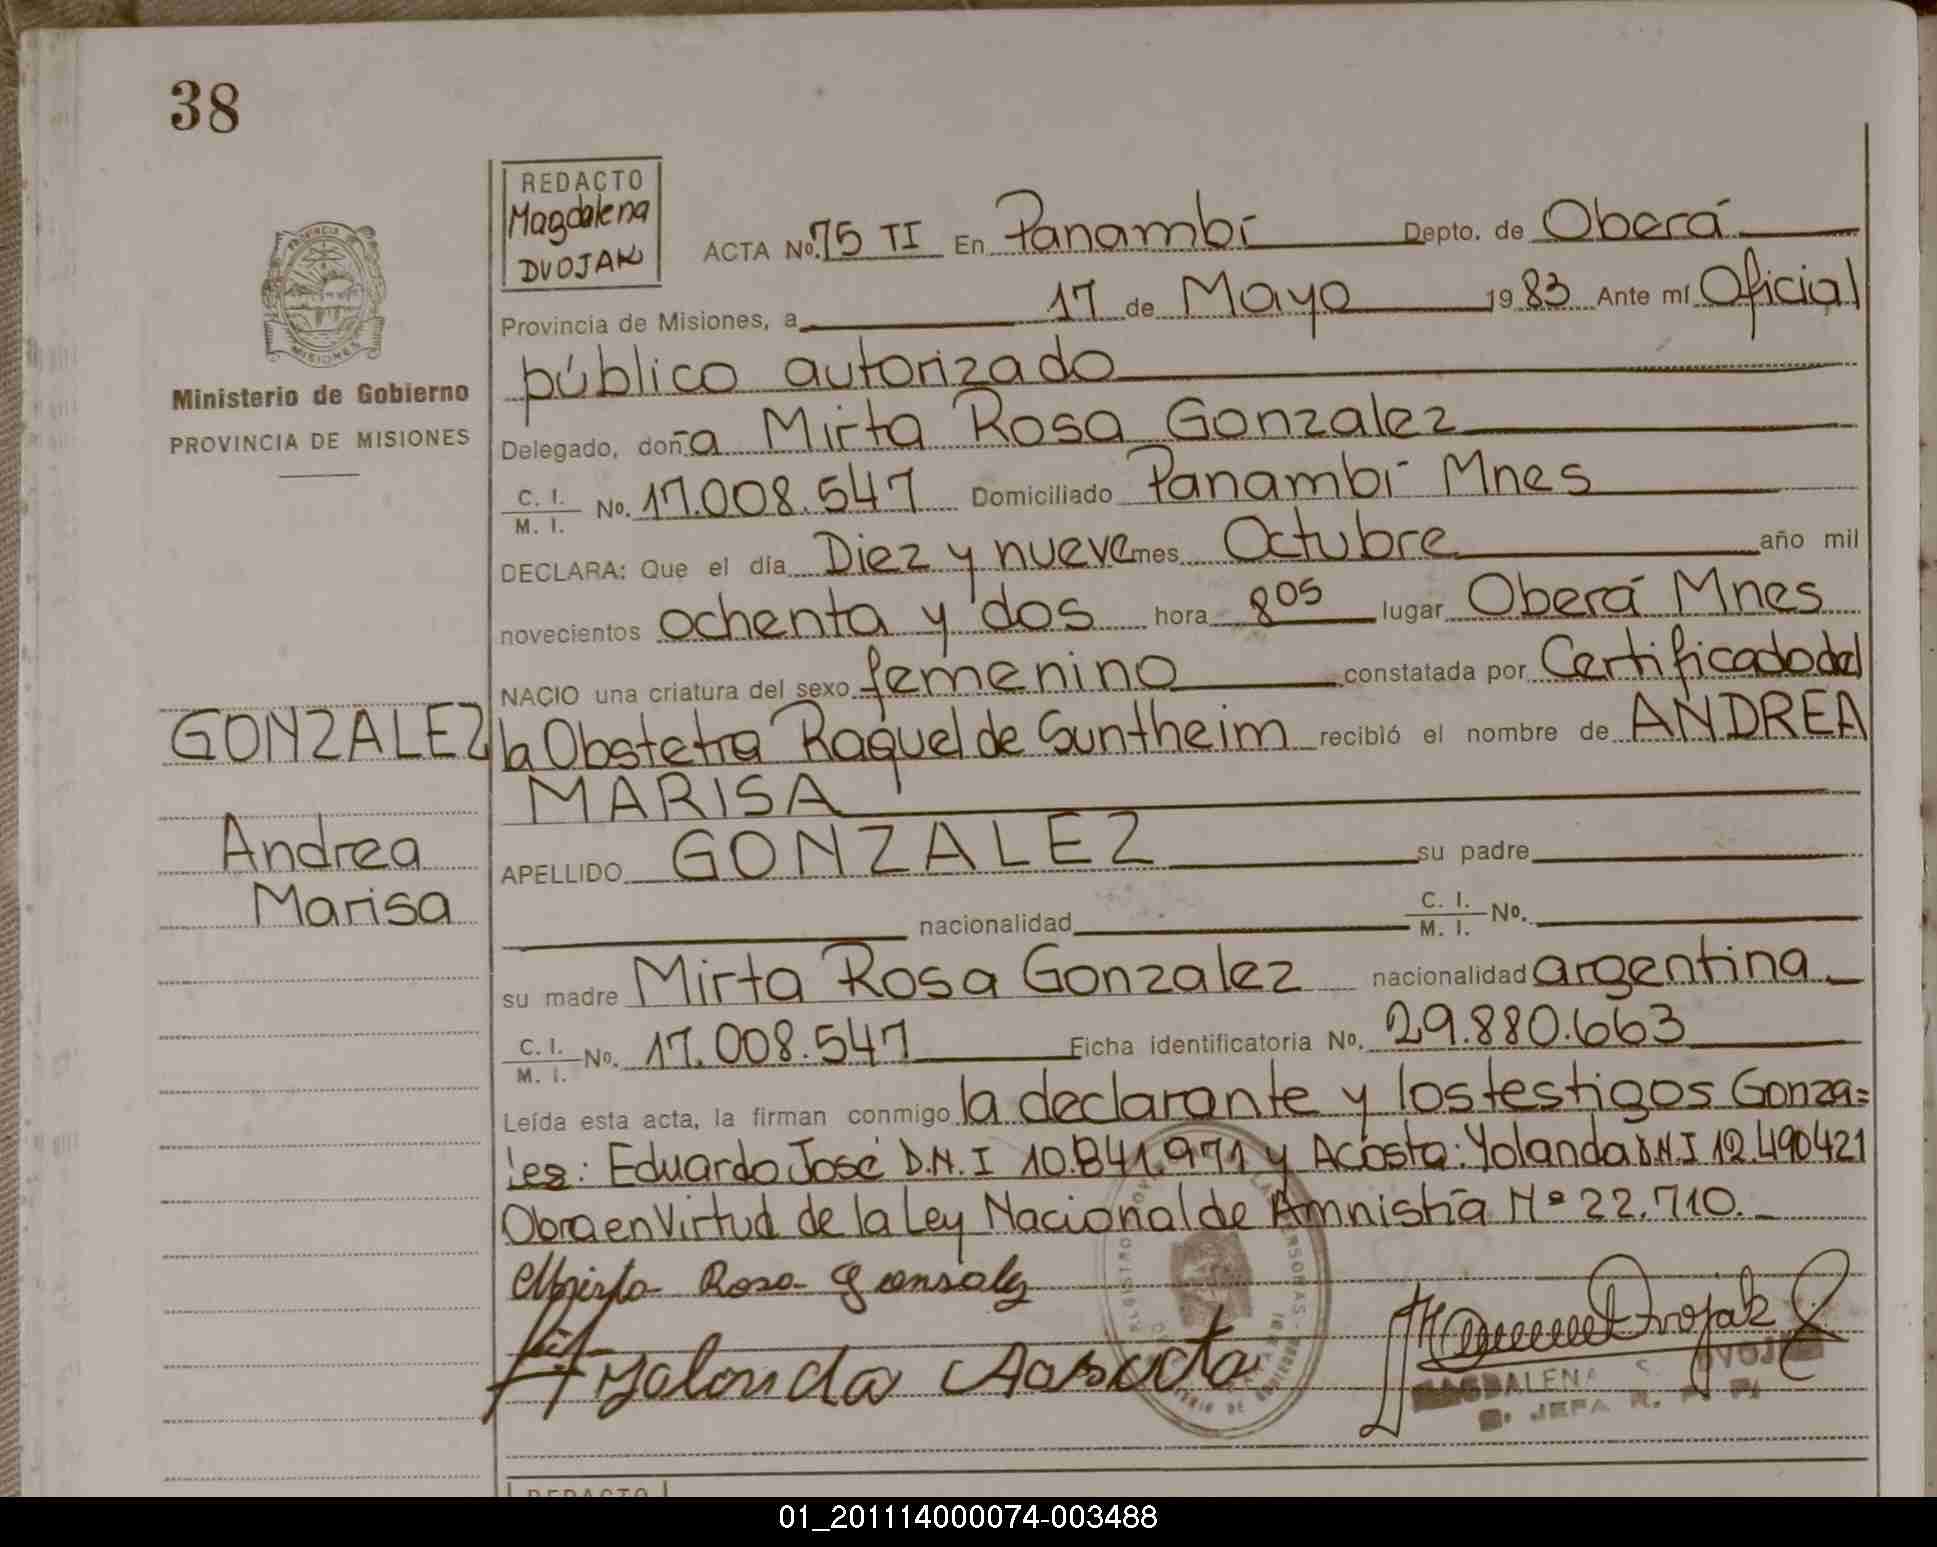 38
REDACTO
Magdalena
DVOJAK
ACTA No. 75 TI En Panambí Depto. de Oberá
Provincia de Misiones, a 17 de Mayo 1983 Ante mí Oficial
público autorizado
Delegado, doña Mirta Rosa Gonzalez
C. I.
M. I. No. 17.008.547 Domiciliado Panambí Mnes
DECLARA: Que el día Diez y nueve mes Octubre año mil
novecientos ochenta y dos hora 8 05 lugar Oberá Mnes
NACIO una criatura del sexo femenino constatada por Certificado de
la Obstetra Raquel de Suntheim recibió el nombre de ANDREA
MARISA
APELLIDO GONZALEZ su padre
nacionalidad C. I.
M. I. No.
su madre Mirta Rosa Gonzalez nacionalidad argentina
C. I.
M. I. No. 17.008.547 Ficha identificatoria No. 29.880.663
Leída esta acta, la firman conmigo la declarante y los testigos Gonza=
lez: Eduardo José D.N.I 10.841.971 y Acosta: Yolanda D.N.I 12.490421
Obra en Virtud de la Ley Nacional de Amnistía Nº 22.710.
Mirta Rosa Gonsalez
Yolonda Acosta
Dvojak
MAGDALENA S. DVOJAK
JEFA R. P. P.
PROVINCIA DE
MISIONES
Ministerio de Gobierno
PROVINCIA DE MISIONES
GONZALEZ
Andrea
Marisa
REDACTO
01_201114000074-003488